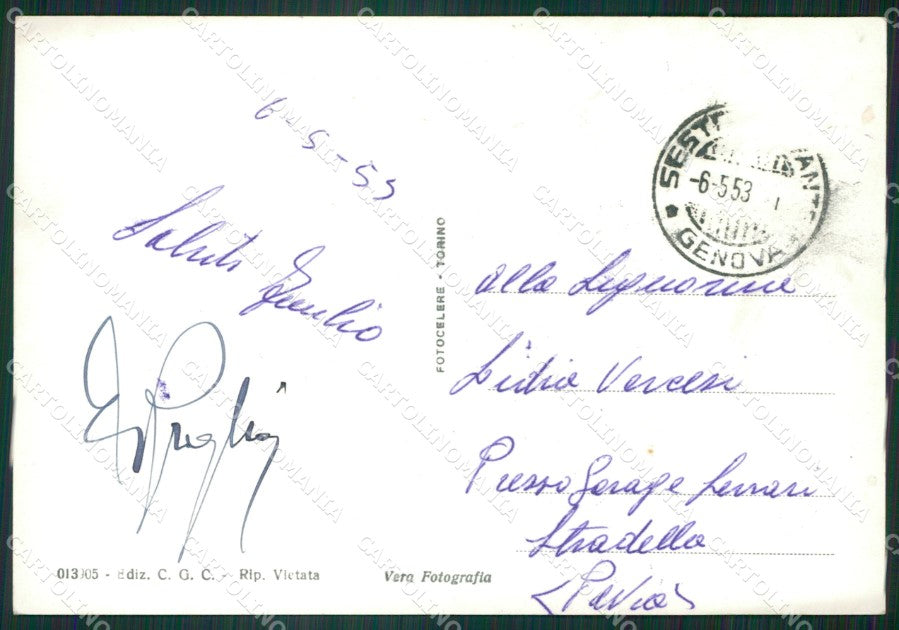 6-5-53
Saluti
Emilio
FOTOCELERE - TORINO
SEST
ANTE
-6-5 53
GENOVA
alla Signorina
Lidia Vercesi
Presso Garage Ferrari
Stradella
(Pavia)
013905 - Ediz. C. G. C. - Rip. Vietata
Vera Fotografia
CARTOLINOMANIA